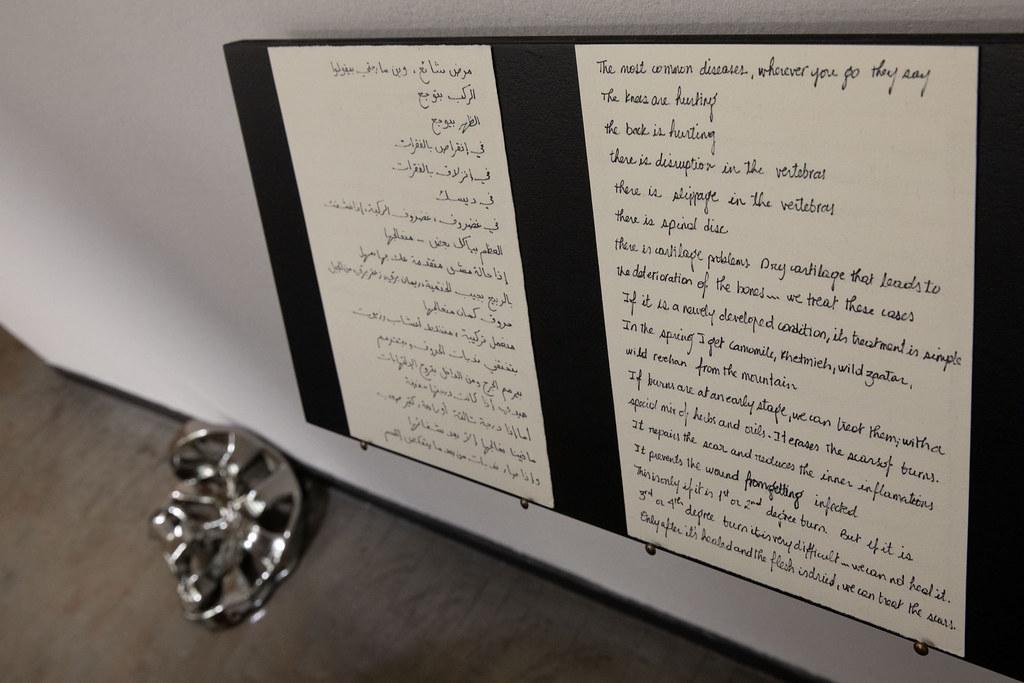 مرض شائع، وين ما رحتي بيقولوا
الركب بتوجع
الظهر بيوجع
في إنقراص بالفقرات
في انزلاق بالفقرات
في ديسك
في غضروف، غضروف الركبة، إذا
العظم بياكل بعض - منعالجها
إذا حالة مش متقدمة
بالربيع بجيب
حروق كمان منعالجها
منعمل تركيبة، أعشاب وزيوت
بتختفي ندبات الحروق
بيرمم الجرح ومن الداخل بتروح الإلتهابات
أما إذا درجة ثالثة أو رابعة، كتير صعب
ما فينا نعالجها إلا بعد شفائها
The most common diseases, wherever you go they say
The knees are hurting
the back is hurting
there is disruption in the vertebras
there is slippage in the vertebras
there is spinal disc
there is cartilage problems Dry cartilage that leads to
the deterioration of the bones... we treat these cases
If it is a newly developed condition, its treatment is simple
In the spring I get camomile, Khetmieh, wild zaatar,
wild reehan from the mountain
If burns are at an early stage, we can treat them, with a
special mix of herbs and oils. It erases the scars of burns.
It repairs the scar and reduces the inner inflamations
It prevents the wound from getting infected
This is only if it is 1st or 2nd degree burn. But if it is
3rd or 4th degree burn it is very difficult... we can not heal it.
Only after it's healed and the flesh is dried, we can treat the scars.